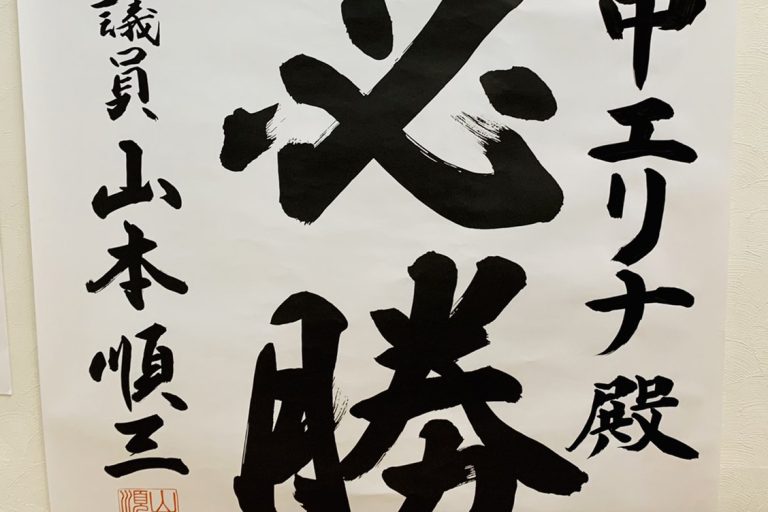 中エリナ殿
必勝
議員 山本順三